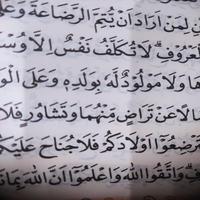 لِمَنْ أَرَادَ أَنْ يُتِمَّ الرَّضَاعَةَ وَعَلَى
لَا تُكَلَّفُ نَفْسٌ إِلَّا وُسْ
وَلَا مَوْلُودٌ لَّهُ بِوَلَدِهِ وَعَلَى الْوَ
عَنْ تَرَاضٍ مِّنْهُمَا وَتَشَاوُرٍ فَلَا
أَوْلَادَكُمْ فَلَا جُنَاحَ عَلَيْكُمْ
وَاتَّقُوا اللَّهَ وَاعْلَمُوا أَنَّ اللَّهَ بِمَا